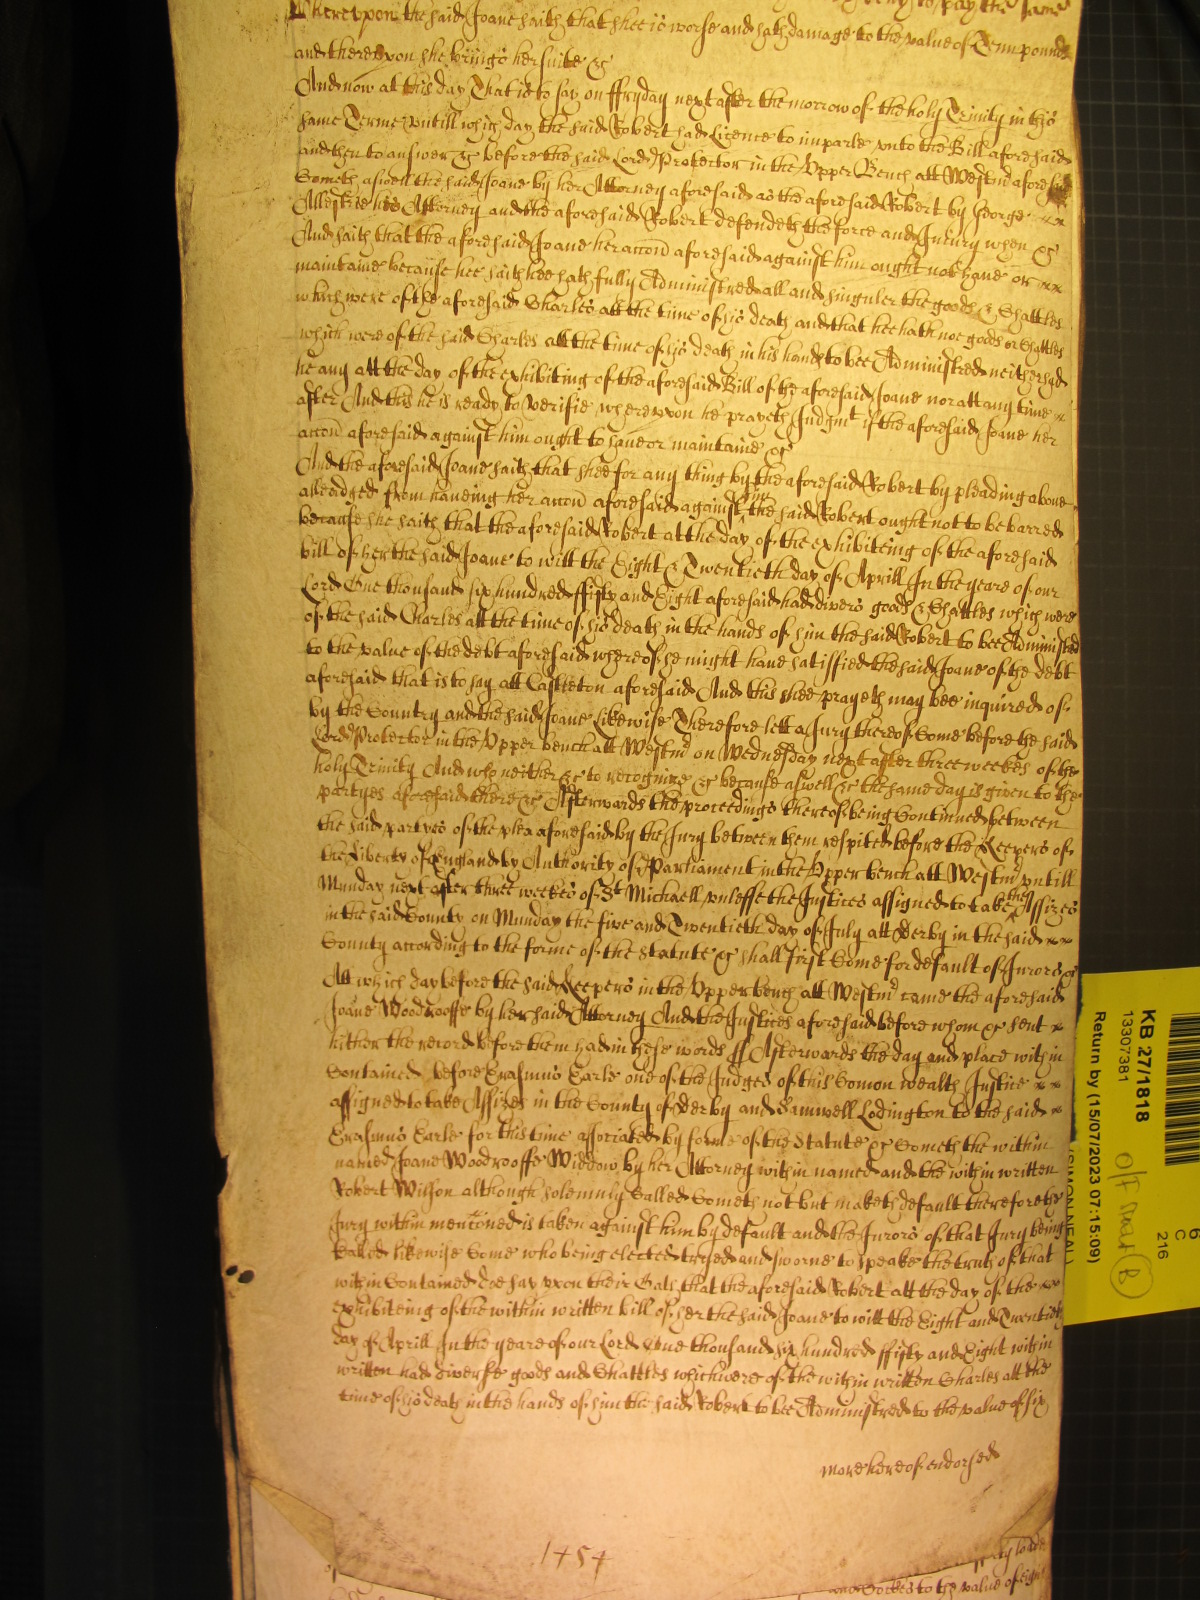 thereupon the said Joane saith that shee is worse and hath damage to the value of Tenn pounds
and thereupon she bringes her suite &c
And now at this day That is to say on ffryday next after the morrow of the holy Trinity in this
same Terme untill which day the said Robert had Licence to imparle unto the Bill aforesaid
and then to answer &c before the said Lord Protector in the Upper Bench att Westmr aforesaid
Cometh aswell the said Joane by her Attorney aforesaid as the aforesaid Robert by George
Allestree his Attorney and the aforesaid Robert defendeth the force and Injury when &c
And saith that the aforesaid Joane her accon aforesaid against him ought not have or
maintaine because hee saith hee hath fully Administred all and singuler the goods & Chattles
which were of the aforesaid Charles att the time of his death and that hee hath noe goods or Chattles
which were of the said Charles att the time of his death in his hands to bee Administred neither had
he any att the day of the exhibiting of the aforesaid Bill of the aforesaid Joane nor att any time
after And this he is ready to verifie whereupon he prayeth Judgmt if the aforesaid Joane her
accon aforesaid against him ought to have or maintaine &c
And the aforesaid Joane saith that shee for any thing by the aforesaid Robert by pleading above
alleadged from haveing her accon aforesaid against him the said Robert ought not to be barred
because she saith that the aforesaid Robert at the day of the exhibiteing of the aforesaid
bill of her the said Joane to witt the Eight & Twentieth day of Aprill In the yeare of our
Lord One thousand six hundred ffifty and Eight aforesaid had divers goods & Chattles which were
of the said Charles att the time of his death in the hands of him the said Robert to bee Administred
to the value of the debt aforesaid whereof he might have satisffied the said Joane of the debt
aforesaid that is to say att Castleton aforesaid And this shee prayeth may bee inquired of
by the Country and the said Joane Likewise Therefore lett a Jury thereof Come before the said
Lord Protector in the Upper bench att Westmr on Wednesday next after three weekes of the
holy Trinity And who neither &c to recognize &c because aswell &c the same day is given to the
partyes aforesaid there &c Afterwards the proceedings thereof being Continued between
the said partyes of the plea aforesaid by the Jury between them respited before the Keepers of
the Liberty of England by Authority of Parliament in the Upper bench att Westmr untill
Munday next after three weekes of St Michaell unlesse the Justices assigned to take the Assizes
in the said County on Munday the five and Twentieth day of July att Derby in the said
County according to the forme of the statute &c shall first Come for default of Jurors &c
Att which day before the said Keepers in the Upper bench att Westmr came the aforesaid
Joane Woodrooffe by her said Attorney And the Justices aforesaid before whom &c sent
hither the record before them had in these words ss Afterwards the day and place within
Contained before Erasmus Earle one of the Judges of this Comon wealth Justice
assigned to take Assizes in the County of Derby and Samwell Lodington to the said
Erasmus Earle for this time associated by forme of the statute &c Cometh the within
named Joane Woodrooffe Widdow by her Attorney within named and the within written
Robert Wilson although solemnly Called Cometh not but maketh default therefore the
Jury within mencioned is taken against him by default and the Jurors of that Jury being
Called likewise Come who being elected tryed and sworne to speake the truth of that
within Contained doe say upon their Oath that the aforesaid Robert att the day of the
exhibiteing of the within written bill of her the said Joane to witt the Eight and Twentieth
day of Aprill In the yeare of our Lord One thousand six hundred ffifty and Eight within
written had diverse goods and Chattles which were of the within written Charles att the
time of his death in the hands of him the said Robert to bee Administred to the value of six
more hereof endorsed
1454
to the value of eight
KB 27/1818
13307381
Return by (15/07/2023 07:15:09)
(SIMON NEAL)
6
C
216
B